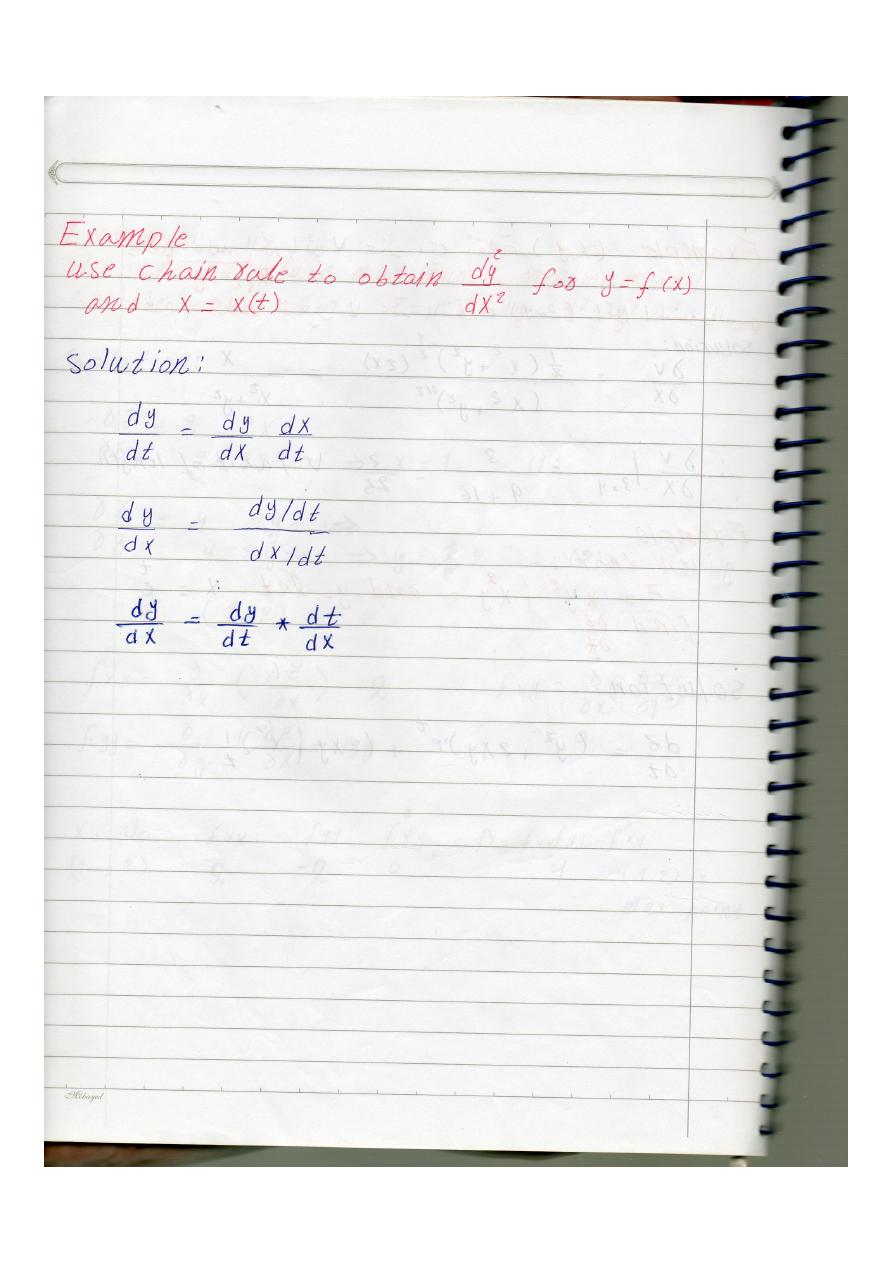 Example
use chain rale to obtain dy²/dx² for y = f(x)
and x = x(t)
Solution:
dy/dt = dy/dx dx/dt
dy/dx = dy/dt / dx/dt
dy/dx = dy/dt * dt/dx